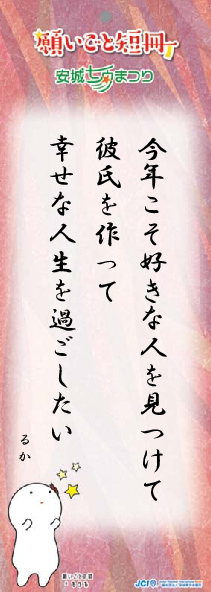 願いごと短冊
安城七夕まつり
今年こそ好きな人を見つけて
彼氏を作って
幸せな人生を過ごしたい
るか
願いごと短冊
JCI